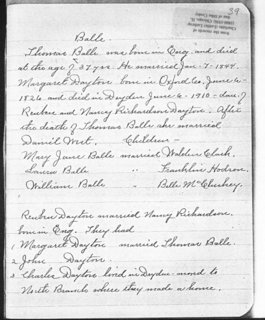 39
Balle
Thomas Balle was born in Eng. and died
at the age of 37 yrs. He married Jan-7-1844.
Margaret Dayton born in Oxford Co, June-6-
1826 and died in Dryden June-6-1910-dau. of
Reuben and Nancy Richardson Dayton. After
the death of Thomas Balle she married
Daniel West. Children-
Mary Jane Balle married Walden Clark.
Balle " Franklin
William Balle " Belle
Reuben Dayton married Nancy Richardson.
born in Eng. They had
1 Margaret Dayton married Thomas Balle.
2 John Dayton.
3 Charles Dayton lived in Dryden-moved to
North Branch where they made a home.